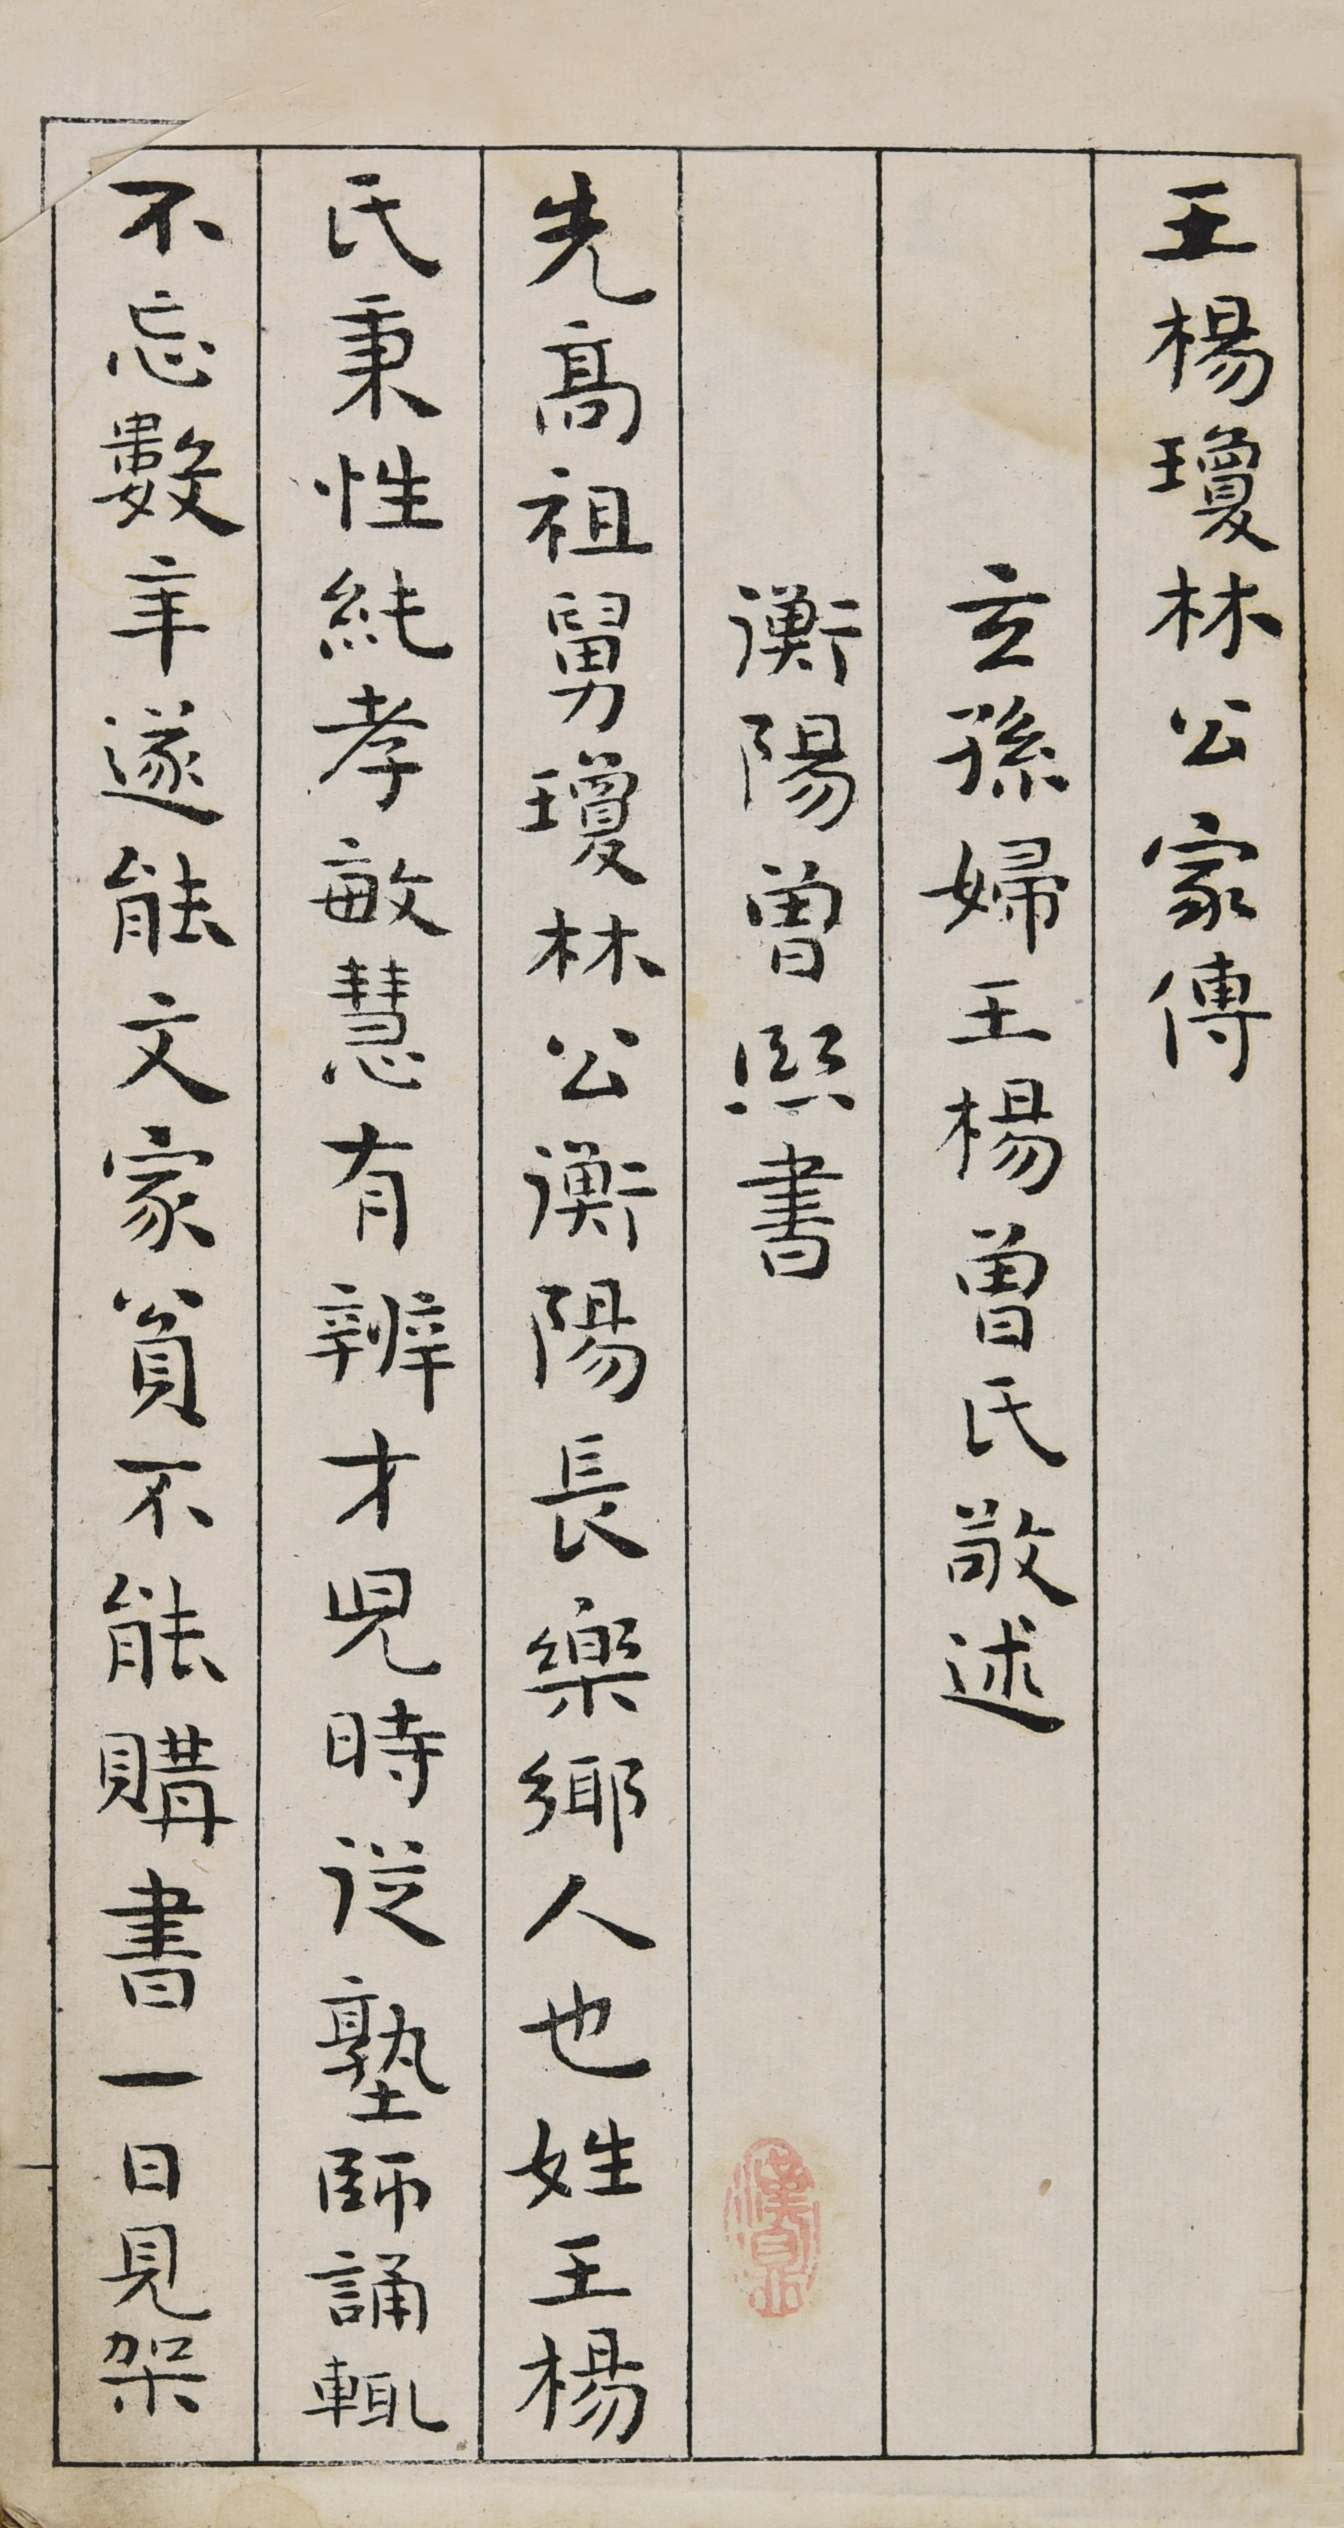 王楊瓊林公家傳
玄孫婦王楊曾氏敬述
衡陽曾熙書
先高祖舅瓊林公衡陽長樂鄉人也姓王楊
氏秉性純孝敏慧有辨才兒時從塾師誦輒
不忘數年遂能文家貧不能購書一日見架